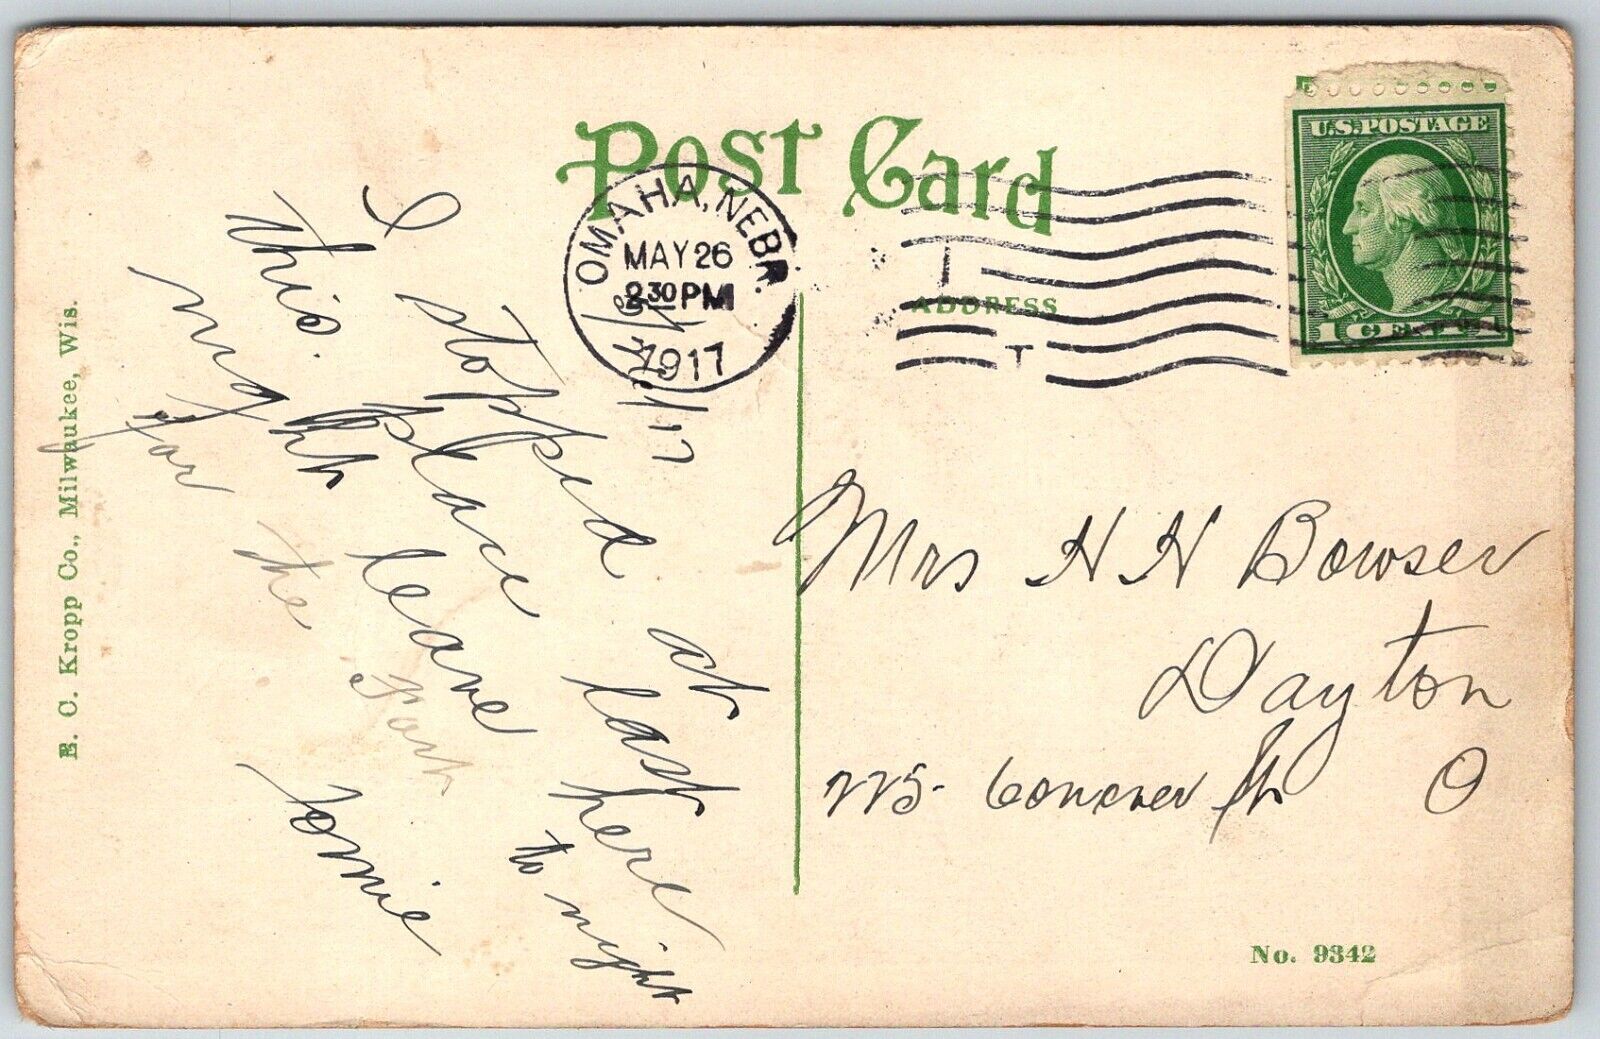 Post Card
OMAHA, NEBR.
MAY 26
2 30 PM
1917
U.S. POSTAGE
1 CENT 1
ADDRESS
I stopped at
this place last
night leave here
to night
for the Fort
Tomie
Mrs H H Bowser
Dayton
225 Conover St O
E. C. Kropp Co., Milwaukee, Wis.
No. 9342